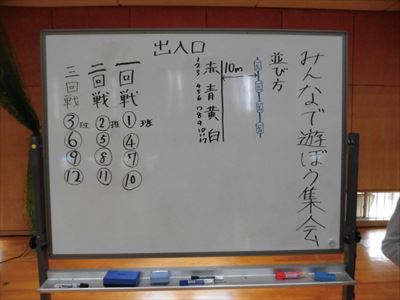 みんなで遊ぼう集会
並び方
出入口
10m
赤 1 2 3
青 4 5 6
黄 7 8 9
白 10 11 12
一回戦
①班
④
⑦
⑩
二回戦
②班
⑤
⑧
⑪
三回戦
③班
⑥
⑨
⑫